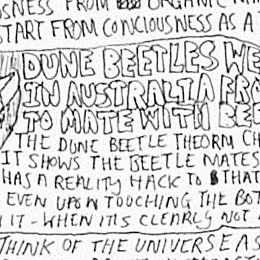 SNESS FROM ORGANIC MA
START FROM CONCIOUSNESS AS A
DUNE BEETLES WE
IN AUSTRALIA FRO
TO MATE WITH BEE
THE DUNE BEETLE THEORM CH
IT SHOWS THE BEETLE MATES
HAS A REALITY HACK TO THAT
EVEN UPON TOUCHING THE BOT
IT - WHEN IT IS CLEARLY NOT A
THINK OF THE UNIVERSE AS